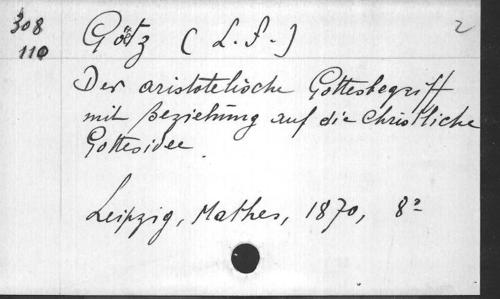 308
110
Götz (L. F.)
2
Der aristotelische Gottesbegriff
mit Beziehung auf die Christliche
Gottesidee
Leipzig, Mathes, 1870, 8º